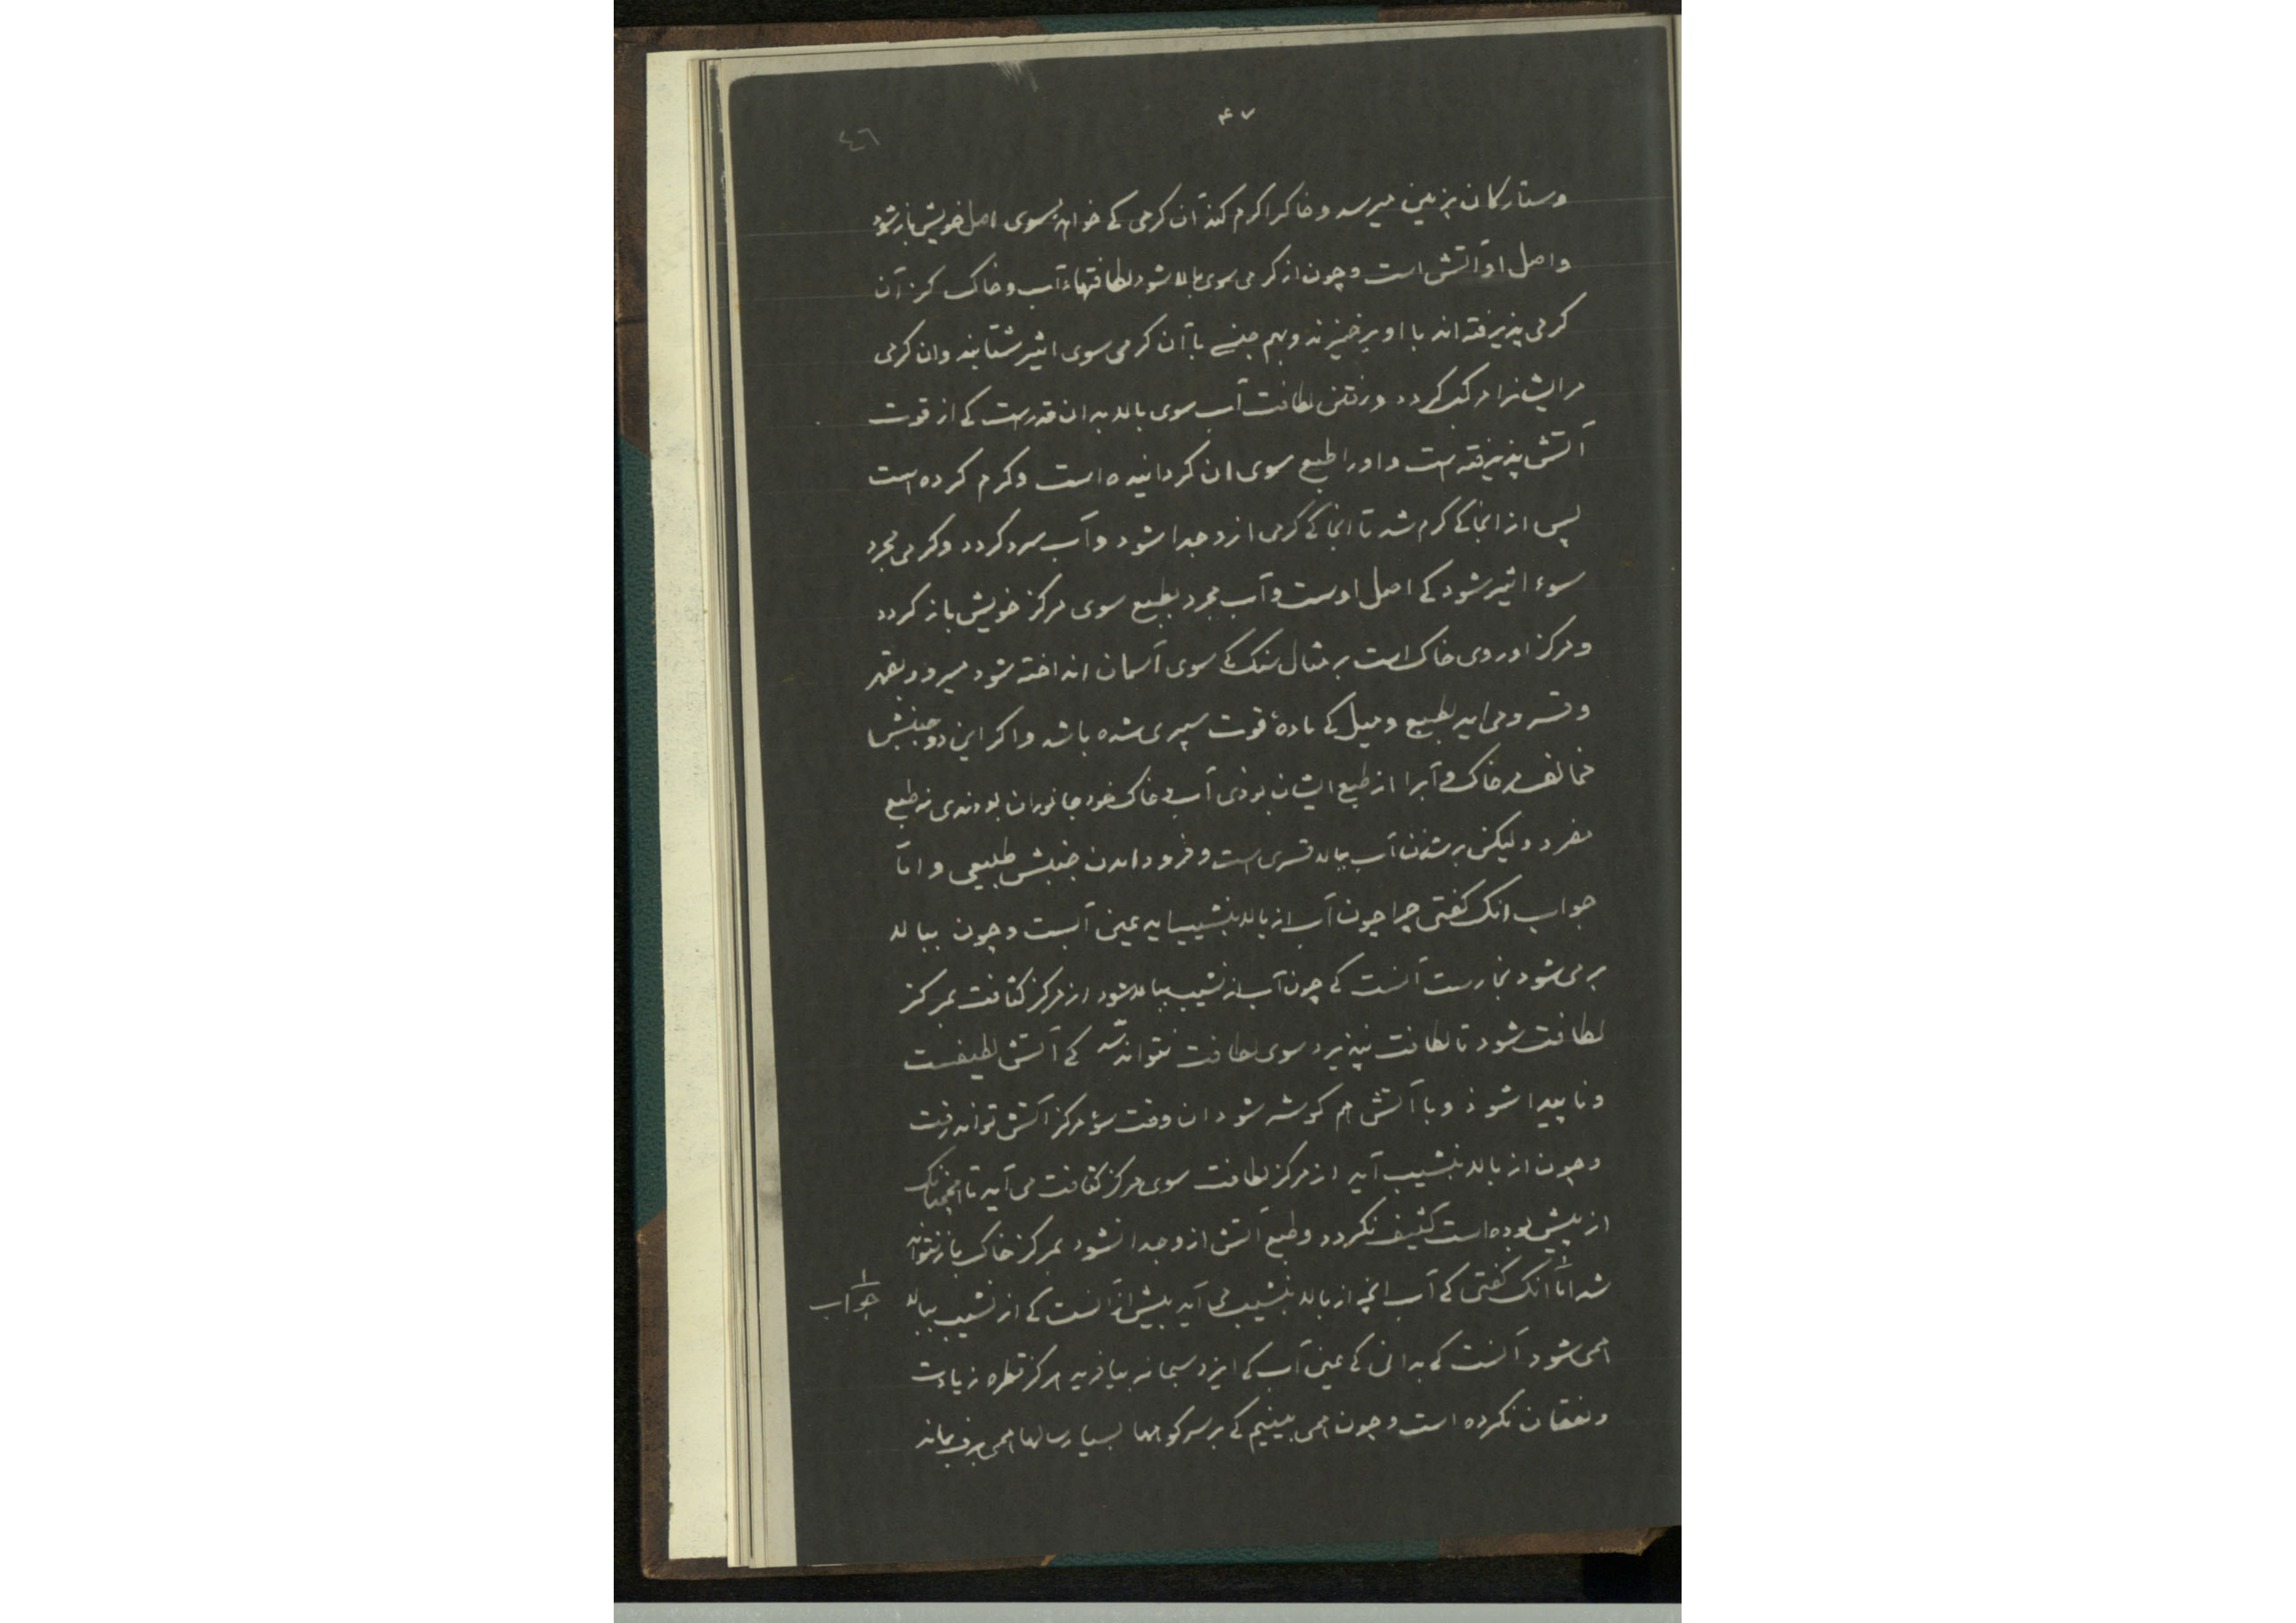 ۴۷
٤٦
وستارکان بزمین میرسد و خاکرا کرم کند آن کرمی کے خواهد بسوی اصل خویش باز شود
واصل او آتش است وچون از کرمی سوی بالا شود لطافتهاء آب و خاک کز آن
کرمی پذیرفته اند با او برخیزند وبهم جنسے با آن کرمی سوی اثیر شتابند وان کرمی
مرایشانرا مرکب کردد ورفتن لطافت آب سوی بالا بدان قدرست کے از قوت
آتش پذیرفته است واورا طبع سوی ان کردانیده است وکرم کرده است
پس از انجا کے کرم شد تا انجا کے کرمی ازو جدا شود وآب سرد کردد وکرمی مجرد
سوء اثیر شود کے اصل اوست وآب مجرد بطبع سوی مرکز خویش باز کردد
ومرکز او روی خاک است بر مثال سنک کے سوی آسمان انداخته شود میرود بقهر
وقسر و می اید بطبع ومیل کے مادهٔ قوت سپری شده باشد واکر این دو جنبش
مخالف مر خاک وآبرا از طبع ایشان بوذی آب و خاک خود جانوران بودندی نه طبع
مفرد ولیکن بر شذن آب ببالا قسری است وفرود امدن جنبش طبیعی واما
جواب انک کفتی چرا چون آب از بالا بنشیب اید عین آبست وچون ببالا
بر می شود بخارست آنست کے چون آب از نشیب ببالا شود از مرکز کثافت بمرکز
لطافت شود تا لطافت نپذیرد سوی لطافت نتواند شد کے آتش لطیفست
وناپیدا شوذ وبا آتش هم کوشه شود ان وقت سوء مرکز آتش تواند رفت
وچون از بالا بنشیب آید از مرکز لطافت سوی مرکز کثافت می آید تا همچنانک
از پیش بوده است کثیف نکردد وطبع آتش ازو جدا نشود بمرکز خاک باز نتواند
شد امّا انک کفتی کے آب انچه از بالا بنشیب می آید بیش از آنست کے از نشیب ببالا
جواب
همی شود آنست کے بدانی کے عین آب کے ایزد سبحانه بیافرید هرکز قطره زیادت
ونقصان نکرده است وچون همی بینیم کے بر سر کوهها بسیار سالها همی برف بماند